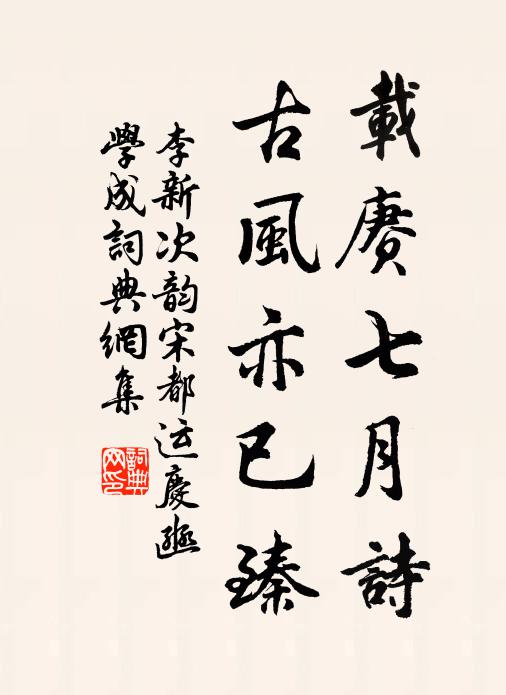 載賡七月詩
古風亦已臻
李新次韵宋都运慶豳
學成詞典網集
詞典
网印